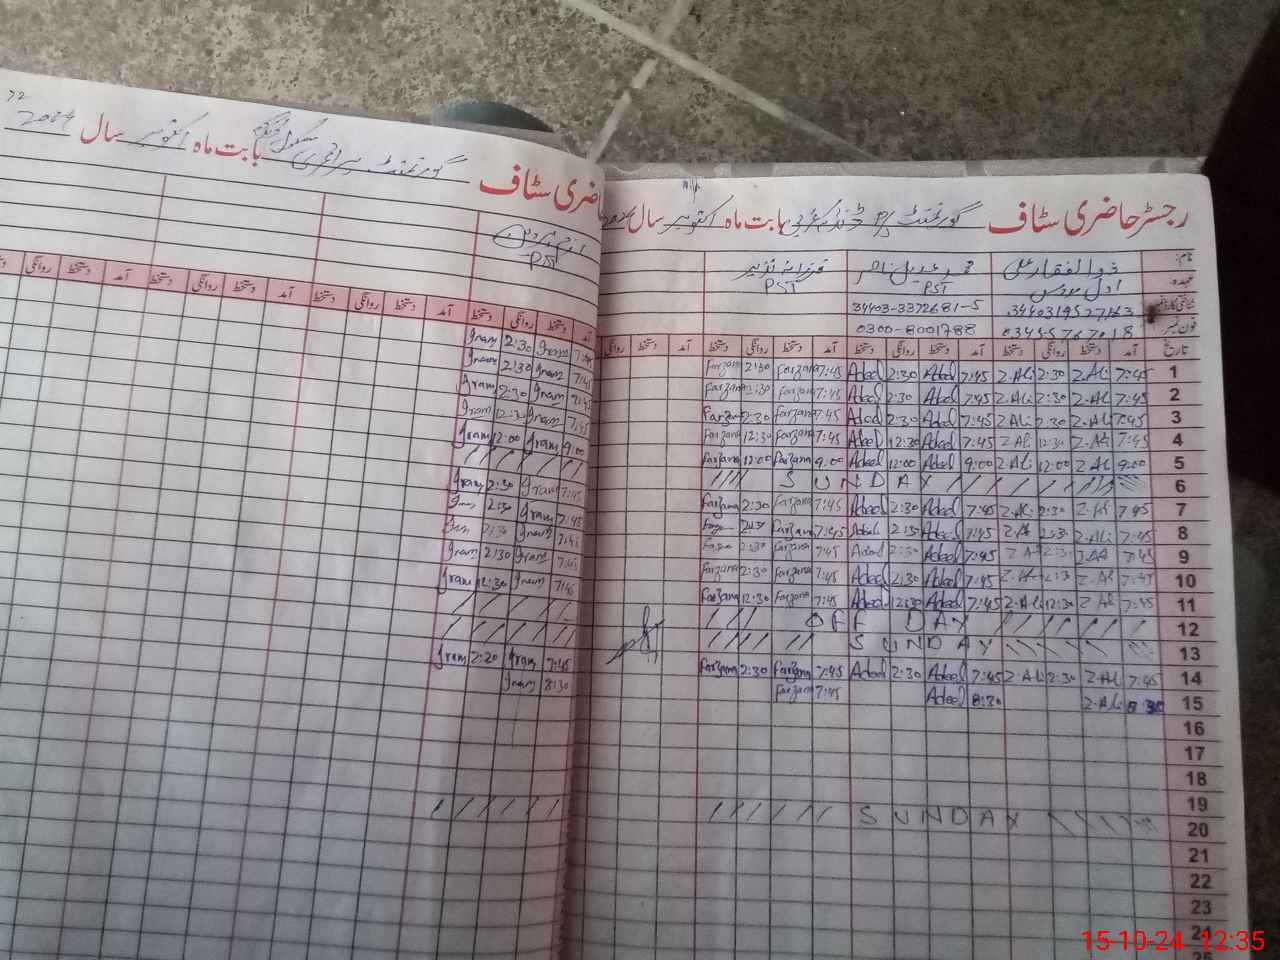 رجسٹر حاضری سٹاف گورنمنٹ بابت ماہ اکتوبر سال
نام: ذوالفقار علی محمد عدیل ناصر فرزانہ
عہدہ: PST PST
34403-3372681-5
فون نمبر 0300-8001788
تاریخ آمد دستخط روانگی دستخط آمد دستخط روانگی دستخط آمد دستخط روانگی دستخط آمد دستخط روانگی
1 7:45 Z.Ali 2:30 Z.Ali 7:45 Adeel 2:30 Adeel 7:45 Farzana 2:30 Farzana
2 7:45 Z.Ali 2:30 Z.Ali 7:45 Adeel 2:30 Adeel 7:45 Farzana 2:30 Farzana
3 7:45 Z.Ali 2:30 Z.Ali 7:45 Adeel 2:30 Adeel 7:45 Farzana 2:30 Farzana
4 7:45 Z.Ali 12:30 Z.Ali 7:45 Adeel 12:30 Adeel 7:45 Farzana 12:30 Farzana
5 9:00 Z.Ali 12:00 Z.Ali 9:00 Adeel 12:00 Adeel 9:00 Farzana 12:00 Farzana
6 SUNDAY
7 7:45 Z.Ali 2:30 Z.Ali 7:45 Adeel 2:30 Adeel 7:45 Farzana 2:30 Farzana
8 7:45 Z.Ali 2:30 Z.Ali 7:45 Adeel Adeel 7:45 Farzana 2:30
9 7:45 Z.Ali 2:30 Z.Ali 7:45 Adeel 2:30 Adeel 7:45 Farzana 2:30
10 7:45 Z.Ali 2:30 Z.Ali 7:45 Adeel 2:30 Adeel 7:45 Farzana 2:30 Farzana
11 7:45 Z.Ali 12:30 Z.Ali 7:45 Adeel 12:30 Adeel 7:45 Farzana 12:30 Farzana
12 OFF DAY
13 SUNDAY
14 7:45 Z.Ali 2:30 Z.Ali 7:45 Adeel 2:30 Adeel 7:45 Farzana 2:30 Farzana
15 8:30 Z.Ali 8:30 Adeel 7:45 Farzana
16
17
18
19
20 SUNDAY
21
22
23
24
حاضری سٹاف گورنمنٹ بابت ماہ اکتوبر سال 2024
72
PST
آمد دستخط روانگی دستخط آمد دستخط روانگی دستخط آمد دستخط روانگی دستخط آمد دستخط روانگی
7:45 Iram 2:30 Iram
7:45 Iram 2:30 Iram
7:45 Iram 2:30 Iram
7:45 Iram 12:30 Iram
9:00 Iram 12:00 Iram
7:45 Iram 2:30 Iram
7:45 Iram 2:30
7:45 Iram 2:30
7:45 Iram 2:30 Iram
7:45 Iram 12:30 Iram
7:45 Iram Iram
8:30 Iram
15-10-24 12:35